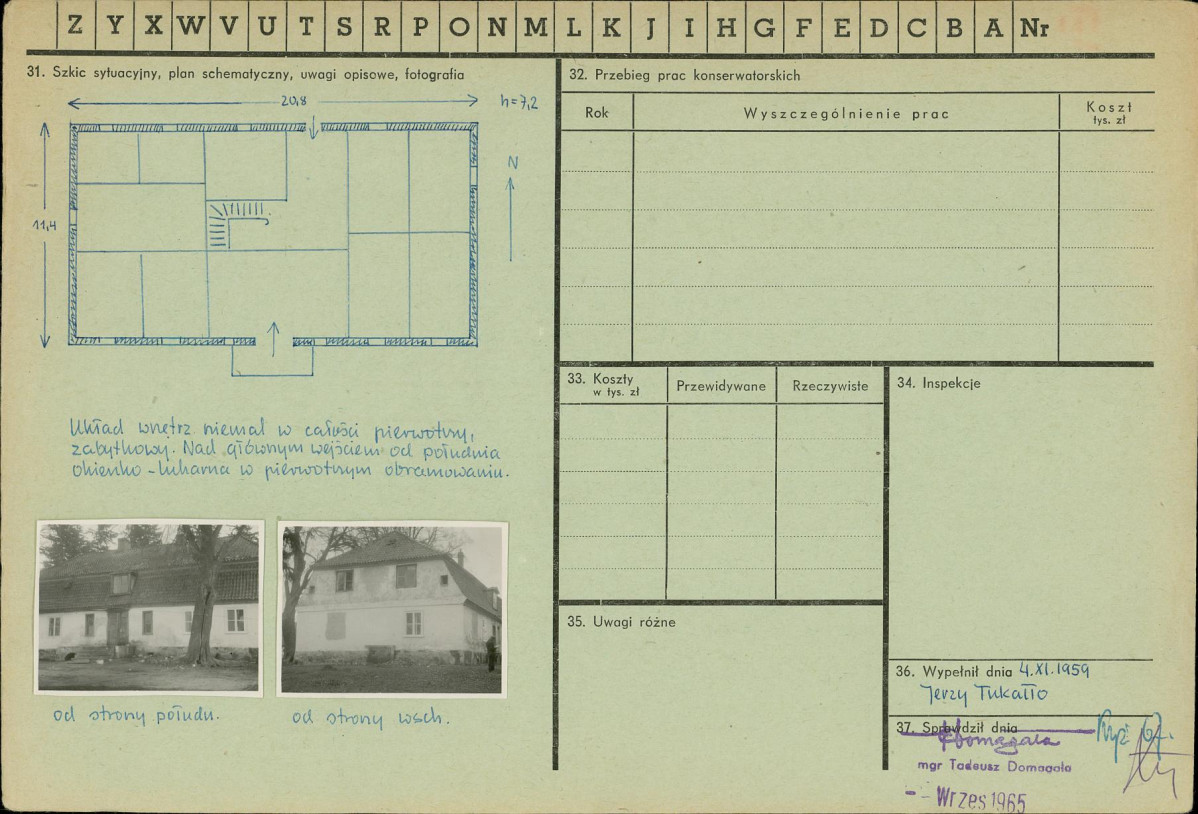 Z Y X W V U T S R P O N M L K J I H G F E D C B A Nr
31. Szkic sytuacyjny, plan schematyczny, uwagi opisowe, fotografia
20,8
h=7,2
N
11,4
Układ wnętrz niemal w całości pierwotny,
zabytkowy. Nad głównym wejściem od południa
okienko - lukarna w pierwotnym obramowaniu.
od strony połudn.
od strony wsch.
32. Przebieg prac konserwatorskich
Rok
Wyszczególnienie prac
Koszt
tys. zł
33. Koszty
w tys. zł
Przewidywane
Rzeczywiste
34. Inspekcje
35. Uwagi różne
36. Wypełnił dnia 4.XI.1959
Jerzy Tukałło
37. Sprawdził dnia
Domagała
mgr Tadeusz Domagała
Wrzes 1965